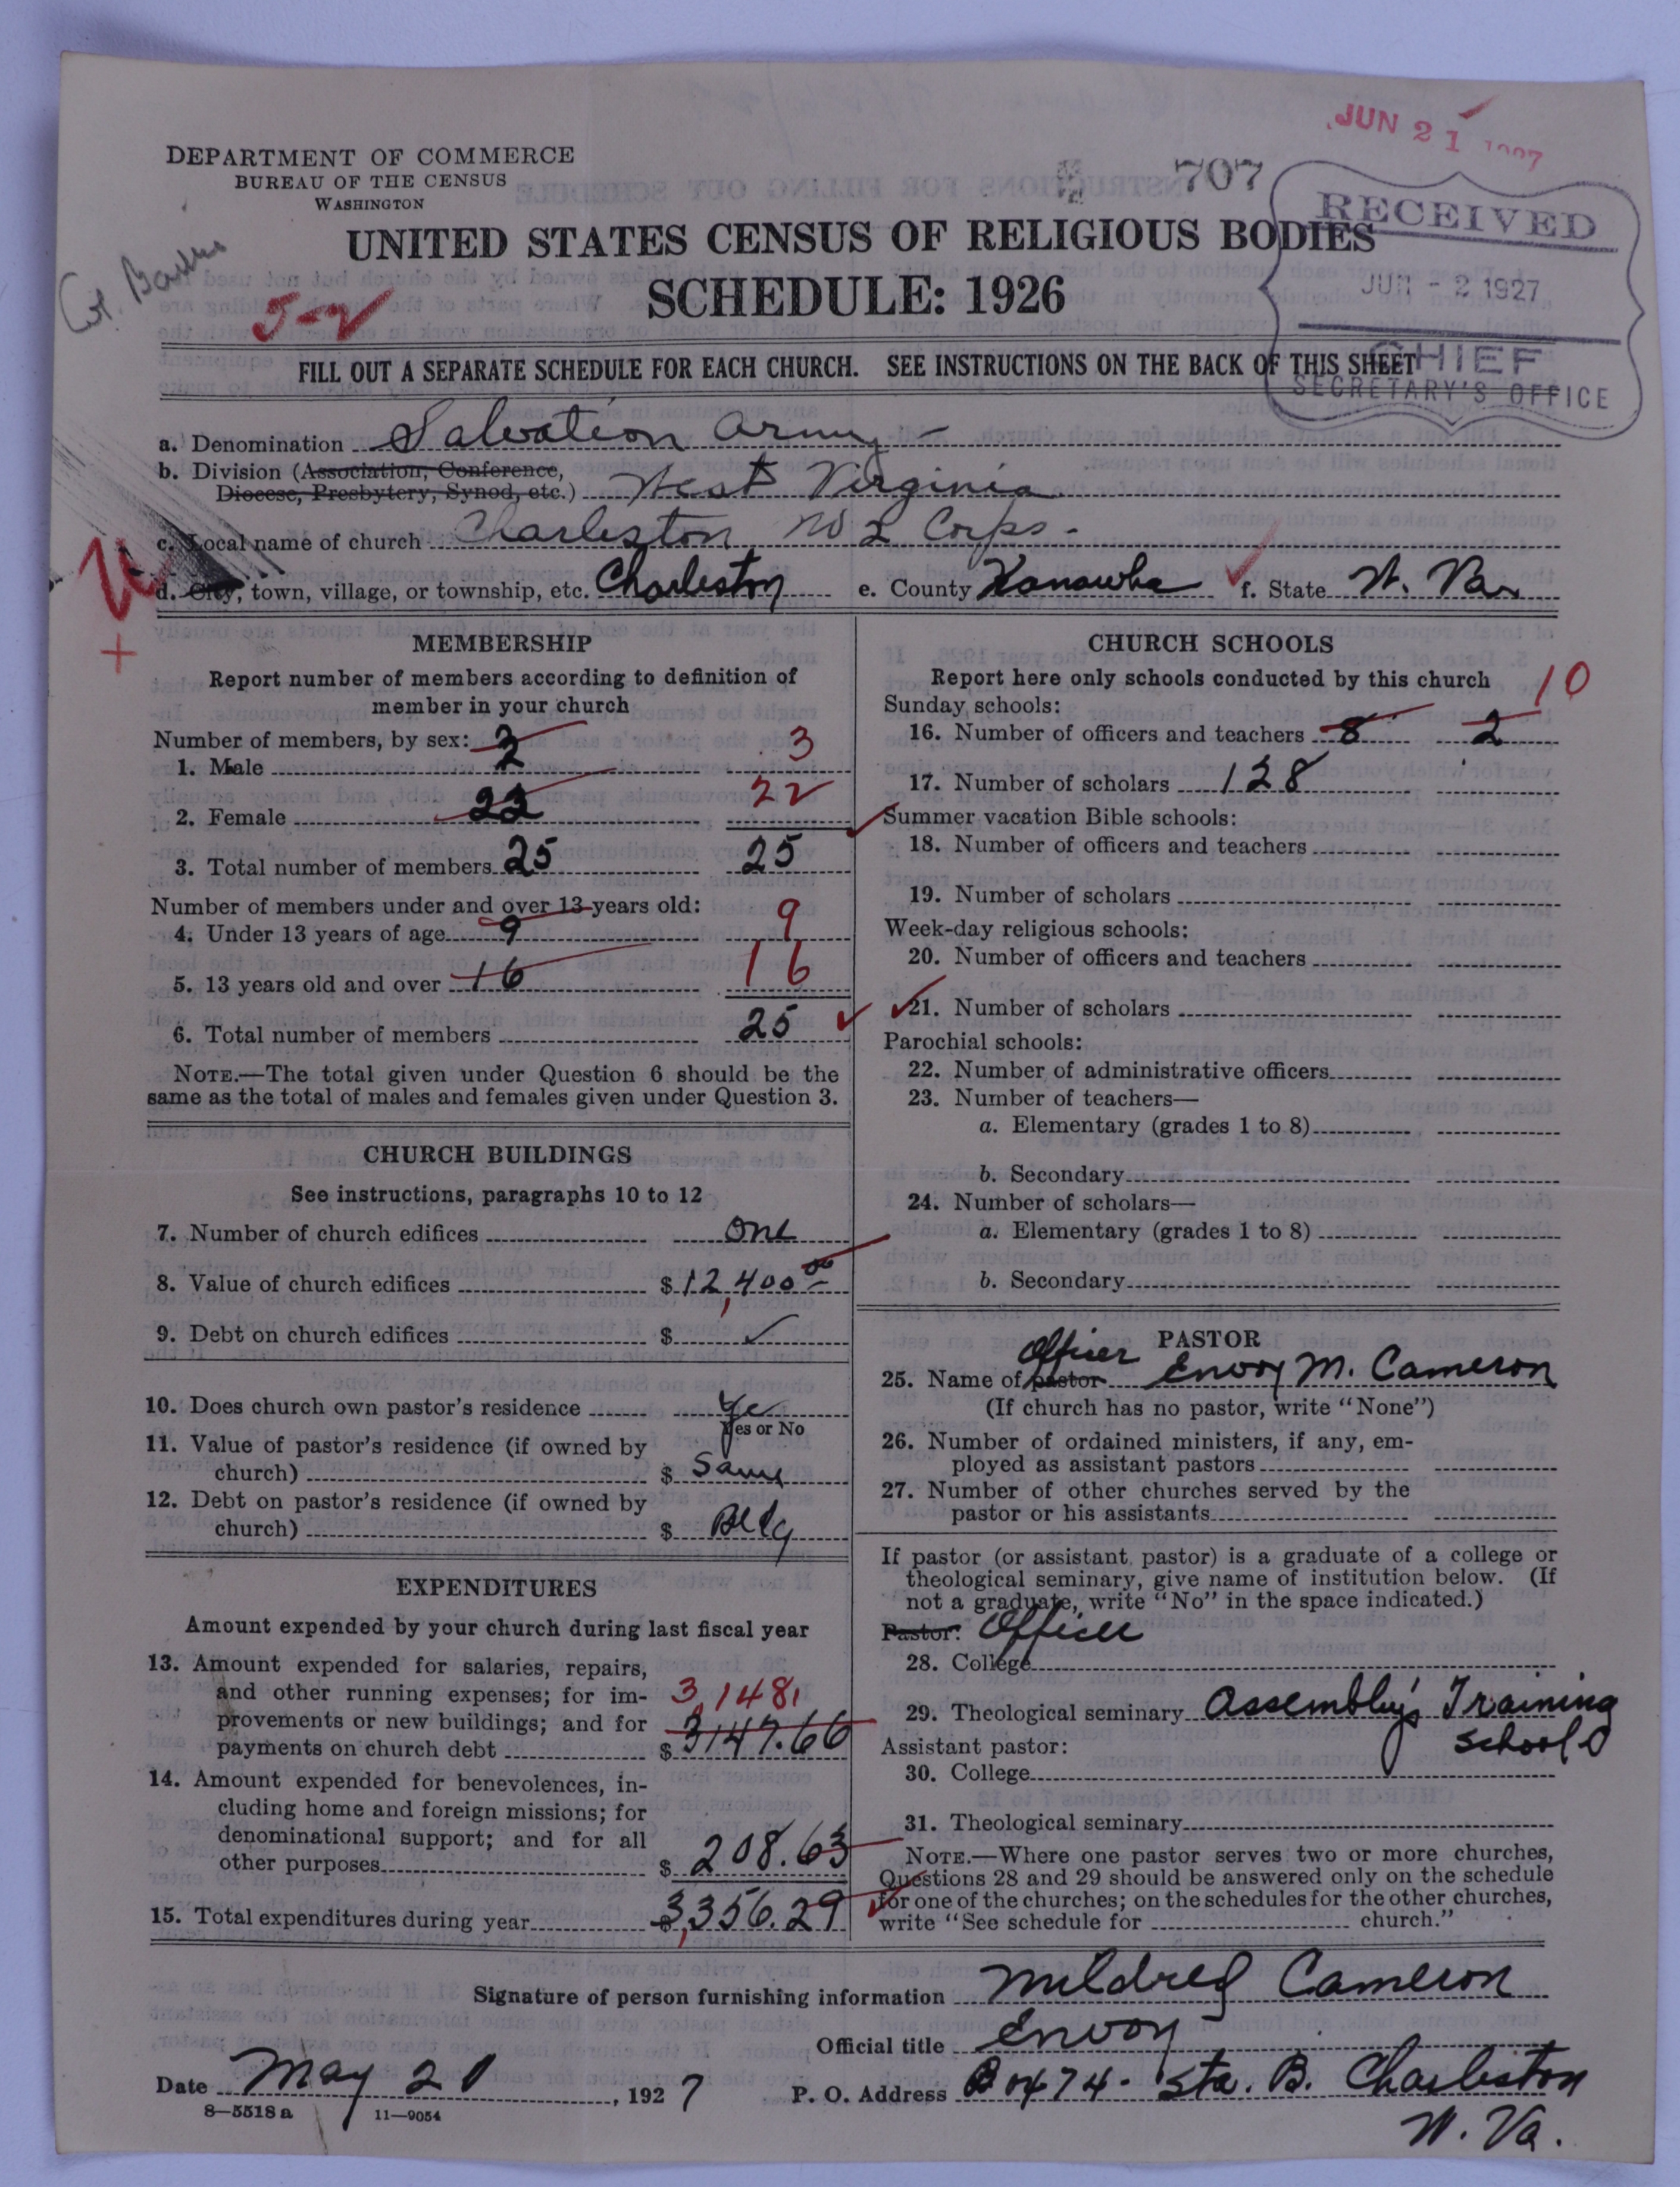 JUN 21 1927
DEPARTMENT OF COMMERCE
BUREAU OF THE CENSUS
WASHINGTON
707
RECEIVED
JUN - 2 1927
CHIEF
SECRETARY'S OFFICE
UNITED STATES CENSUS OF RELIGIOUS BODIES
SCHEDULE: 1926
5-2
FILL OUT A SEPARATE SCHEDULE FOR EACH CHURCH. SEE INSTRUCTIONS ON THE BACK OF THIS SHEET
a. Denomination Salvation Army -
b. Division (Association, Conference,
Diocese, Presbytery, Synod, etc.) West Virginia
c. Local name of church Charleston No 2 Corps.
d. City, town, village, or township, etc. Charleston e. County Kanawha f. State W. Va.
MEMBERSHIP
Report number of members according to definition of
member in your church
Number of members, by sex: 3
1. Male 3
2. Female 22 22
3. Total number of members 25 25
Number of members under and over 13 years old:
4. Under 13 years of age 9 9
5. 13 years old and over 16 16
6. Total number of members 25
NOTE.—The total given under Question 6 should be the
same as the total of males and females given under Question 3.
CHURCH BUILDINGS
See instructions, paragraphs 10 to 12
7. Number of church edifices One
8. Value of church edifices $ 12,400 00
9. Debt on church edifices $ ✓
10. Does church own pastor's residence Yes
Yes or No
11. Value of pastor's residence (if owned by
church) $ Same
12. Debt on pastor's residence (if owned by
church) $ Bldg
EXPENDITURES
Amount expended by your church during last fiscal year
13. Amount expended for salaries, repairs,
and other running expenses; for im- 3,148
provements or new buildings; and for
payments on church debt $ 3147.66
14. Amount expended for benevolences, in-
cluding home and foreign missions; for
denominational support; and for all
other purposes $ 208.63
15. Total expenditures during year 3,356.29
CHURCH SCHOOLS
Report here only schools conducted by this church 10
Sunday schools:
16. Number of officers and teachers 8 2
17. Number of scholars 128
Summer vacation Bible schools:
18. Number of officers and teachers
19. Number of scholars
Week-day religious schools:
20. Number of officers and teachers
21. Number of scholars
Parochial schools:
22. Number of administrative officers
23. Number of teachers—
a. Elementary (grades 1 to 8)
b. Secondary
24. Number of scholars—
a. Elementary (grades 1 to 8)
b. Secondary
PASTOR
Officer
25. Name of pastor Envoy M. Cameron
(If church has no pastor, write "None")
26. Number of ordained ministers, if any, em-
ployed as assistant pastors
27. Number of other churches served by the
pastor or his assistants
If pastor (or assistant pastor) is a graduate of a college or
theological seminary, give name of institution below. (If
not a graduate, write "No" in the space indicated.)
Pastor: Officer
28. College
29. Theological seminary Assembly's Training
School
Assistant pastor:
30. College
31. Theological seminary
NOTE.—Where one pastor serves two or more churches,
Questions 28 and 29 should be answered only on the schedule
for one of the churches; on the schedules for the other churches,
write "See schedule for church."
Signature of person furnishing information Mildred Cameron
Official title Envoy
Date May 20, 1927 P. O. Address 474 - Sta. B. Charleston
W. Va.
8—5518 a 11—9054